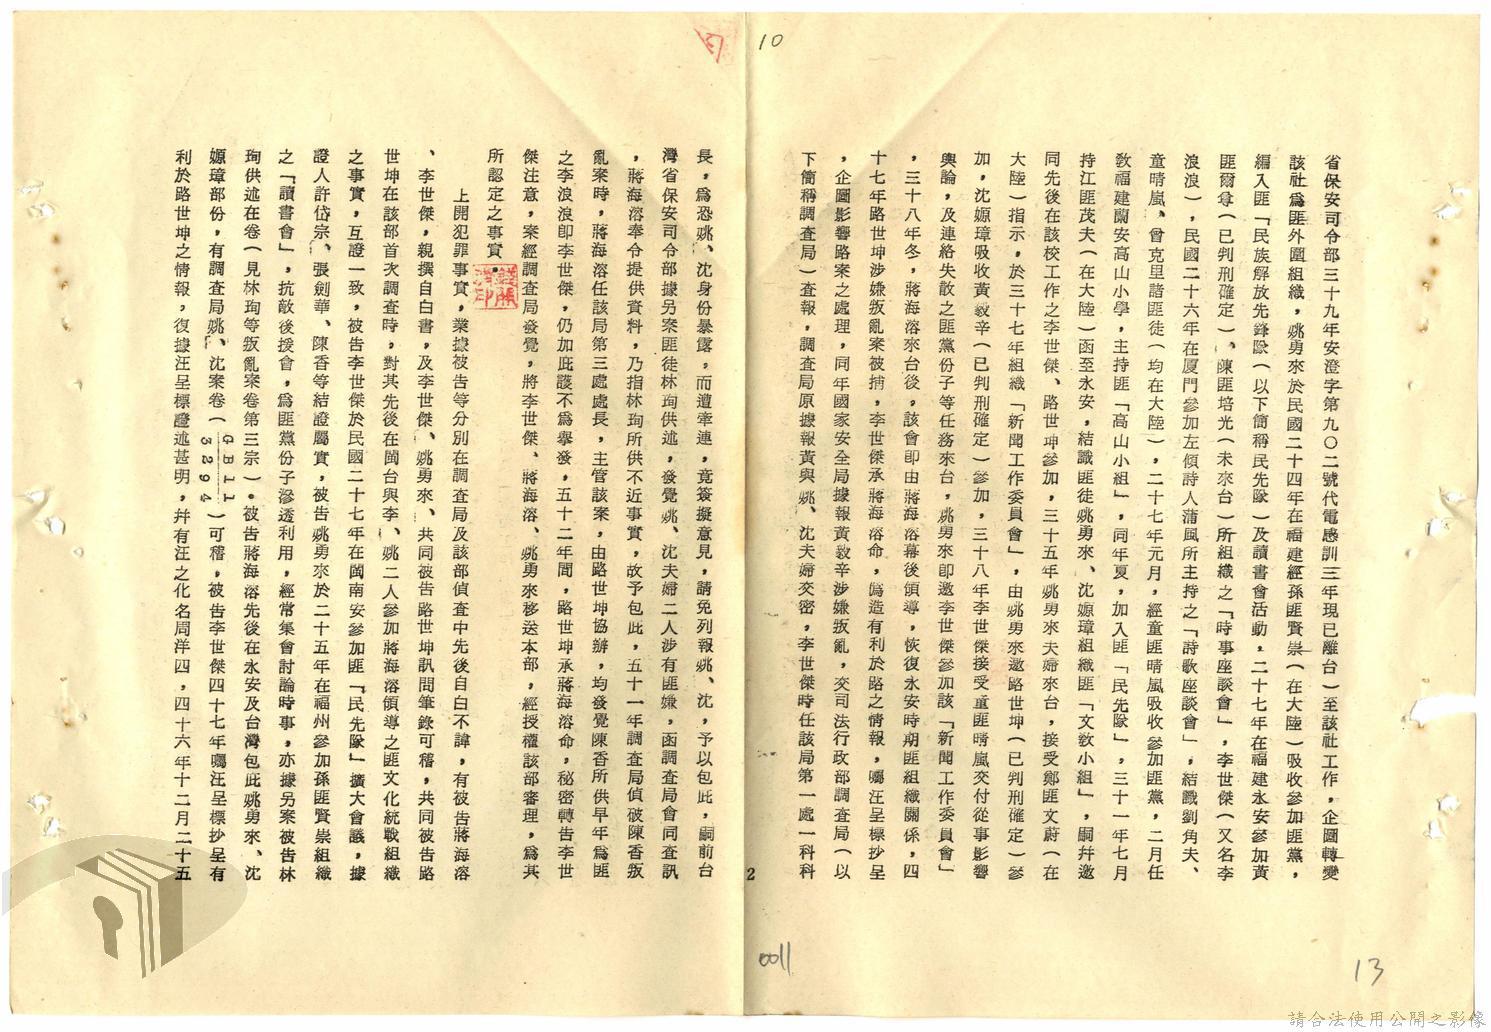 10
省保安司令部三十九年安澄字第九〇二號代電感訓三年現已離台）至該社工作，企圖轉變
該社爲匪外圍組織，姚勇來於民國二十四年在福建經孫匪賢崇（在大陸）吸收參加匪黨，
編入匪「民族解放先鋒隊（以下簡稱民先隊）及讀書會活動，二十七年在福建永安參加黃
匪爾尊（已判刑確定）、陳匪培光（未來台）所組織之「時事座談會」，李世傑（又名李
浪浪），民國二十六年在厦門參加左傾詩人蒲風所主持之「詩歌座談會」，結識劉角夫、
童晴嵐、曾克里諸匪徒（均在大陸），二十七年元月，經童匪晴嵐吸收參加匪黨，二月任
敎福建蘭安高山小學，主持匪「高山小組」，同年夏，加入匪「民先隊」，三十一年七月
持江匪茂夫（在大陸）函至永安，結識匪徒姚勇來、沈嫄璋組織匪「文敎小組」，嗣幷邀
同先後在該校工作之李世傑、路世坤參加，三十五年姚勇來夫婦來台，接受鄭匪文蔚（在
大陸）指示，於三十七年組織「新聞工作委員會」，由姚勇來邀路世坤（已判刑確定）參
加，沈嫄璋吸收黃毅辛（已判刑確定）參加，三十八年李世傑接受童匪晴嵐交付從事影響
輿論，及連絡失散之匪黨份子等任務來台，姚勇來即邀李世傑參加該「新聞工作委員會」
，三十八年冬，蔣海溶來台後，該會即由蔣海溶幕後領導，恢復永安時期匪組織關係，四
十七年路世坤涉嫌叛亂案被捕，李世傑承蔣海溶命，僞造有利於路之情報，囑汪呈標抄呈
，企圖影響路案之處理，同年國家安全局據報黃毅辛涉嫌叛亂，交司法行政部調查局（以
下簡稱調查局）查報，調查局原據報黃與姚、沈夫婦交密，李世傑時任該局第一處一科科
2
長，爲恐姚、沈身份暴露，而遭牽連，竟簽擬意見，請免列報姚、沈，予以包庇，嗣前台
灣省保安司令部據另案匪徒林珣供述，發覺姚、沈夫婦二人涉有匪嫌，函調查局會同查訊
，蔣海溶奉令提供資料，乃指林珣所供不近事實，故予包庇，五十一年調查局偵破陳香叛
亂案時，蔣海溶任該局第三處處長，主管該案，由路世坤協辦，均發覺陳香所供早年爲匪
之李浪浪即李世傑，仍加庇護不爲舉發，五十二年間，路世坤承蔣海溶命，秘密轉告李世
傑注意，案經調查局發覺，將李世傑、蔣海溶、姚勇來移送本部，經授權該部審理，爲其
所認定之事實。
上開犯罪事實，業據被告等分別在調查局及該部偵查中先後自白不諱，有被告蔣海溶
、李世傑，親撰自白書，及李世傑、姚勇來、共同被告路世坤訊問筆錄可稽，共同被告路
世坤在該部首次調查時，對其先後在閩台與李、姚二人參加蔣海溶領導之匪文化統戰組織
之事實，互證一致，被告李世傑於民國二十七年在閩南安參加匪「民先隊」擴大會議，據
證人許岱宗、張劍華、陳香等結證屬實，被告姚勇來於二十五年在福州參加孫匪賢崇組織
之「讀書會」，抗敵後援會，爲匪黨份子滲透利用，經常集會討論時事，亦據另案被告林
珣供述在卷（見林珣等叛亂案卷第三宗）。被告蔣海溶先後在永安及台灣包庇姚勇來、沈
嫄璋部份，有調查局姚、沈案卷（GB113294）可稽，被告李世傑四十七年囑汪呈標抄呈有
利於路世坤之情報，復據汪呈標證述甚明，幷有汪之化名周洋四，四十六年十二月二十五
0011
13
請合法使用公開之影像